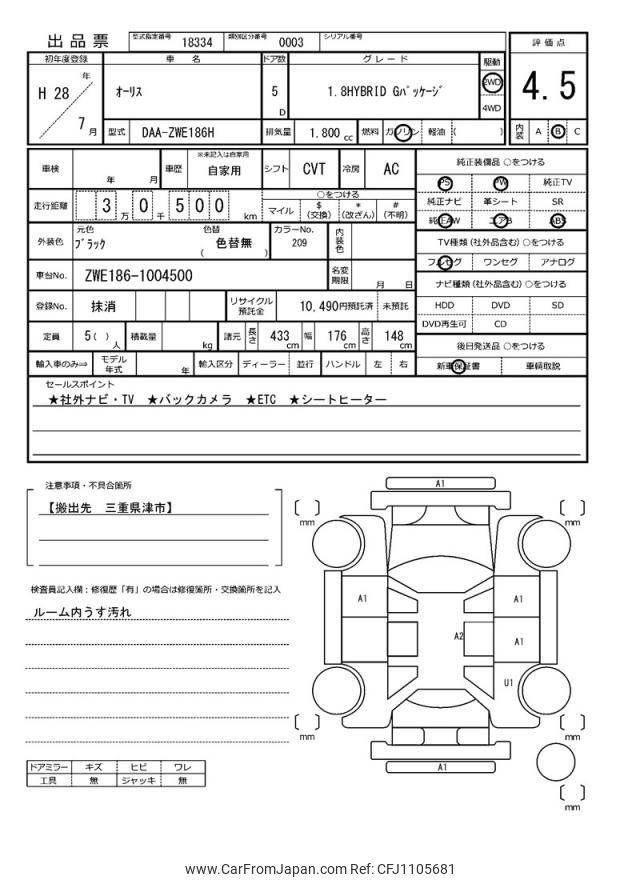 出品票 型式指定番号 18334 類別区分番号 0003 シリアル番号
評価点
4.5
内装 A B C
初年度登録 車名 ドア数 グレード 駆動
H 28 年 7 月
オーリス 5 D 1.8HYBRID Gパッケージ 2WD 4WD
型式 DAA-ZWE186H 排気量 1.800 cc 燃料 ガソリン 軽油 ( )
車検 年 月 車歴 ※未記入は自家用 自家用 シフト CVT 冷房 AC
走行距離 3 万 0 千 5 0 0 km
○をつける
マイル $ (交換) * (改ざん) # (不明)
外装色 元色 ブラック 色替 ( 色替無 ) カラーNo. 209 内装色
車台No. ZWE186-1004500 名変期限 月 日
登録No. 抹消 リサイクル預託金 10,490円預託済 未預託
定員 5( ) 人 積載量 kg 諸元 長さ 433 cm 幅 176 cm 高さ 148 cm
輸入車のみ⇒ モデル年式 年 輸入区分 ディーラー 並行 ハンドル 左 右
純正装備品 ○をつける
PS PW 純正TV
純正ナビ 革シート SR
純正AW エアB ABS
TV種類 (社外品含む) ○をつける
フルセグ ワンセグ アナログ
ナビ種類 (社外品含む) ○をつける
HDD DVD SD
DVD再生可 CD
後日発送品 ○をつける
新車保証書 車輌取説
セールスポイント
★社外ナビ・TV ★バックカメラ ★ETC ★シートヒーター
注意事項・不具合箇所
【搬出先 三重県津市】
検査員記入欄：修復歴「有」の場合は修復箇所・交換箇所を記入
ルーム内うす汚れ
ドアミラー キズ ヒビ ワレ
工具 無 ジャッキ 無
A1
mm
mm
A1
A1
A2
A1
U1
mm
mm
A1
mm
www.CarFromJapan.com Ref: CFJ1105681